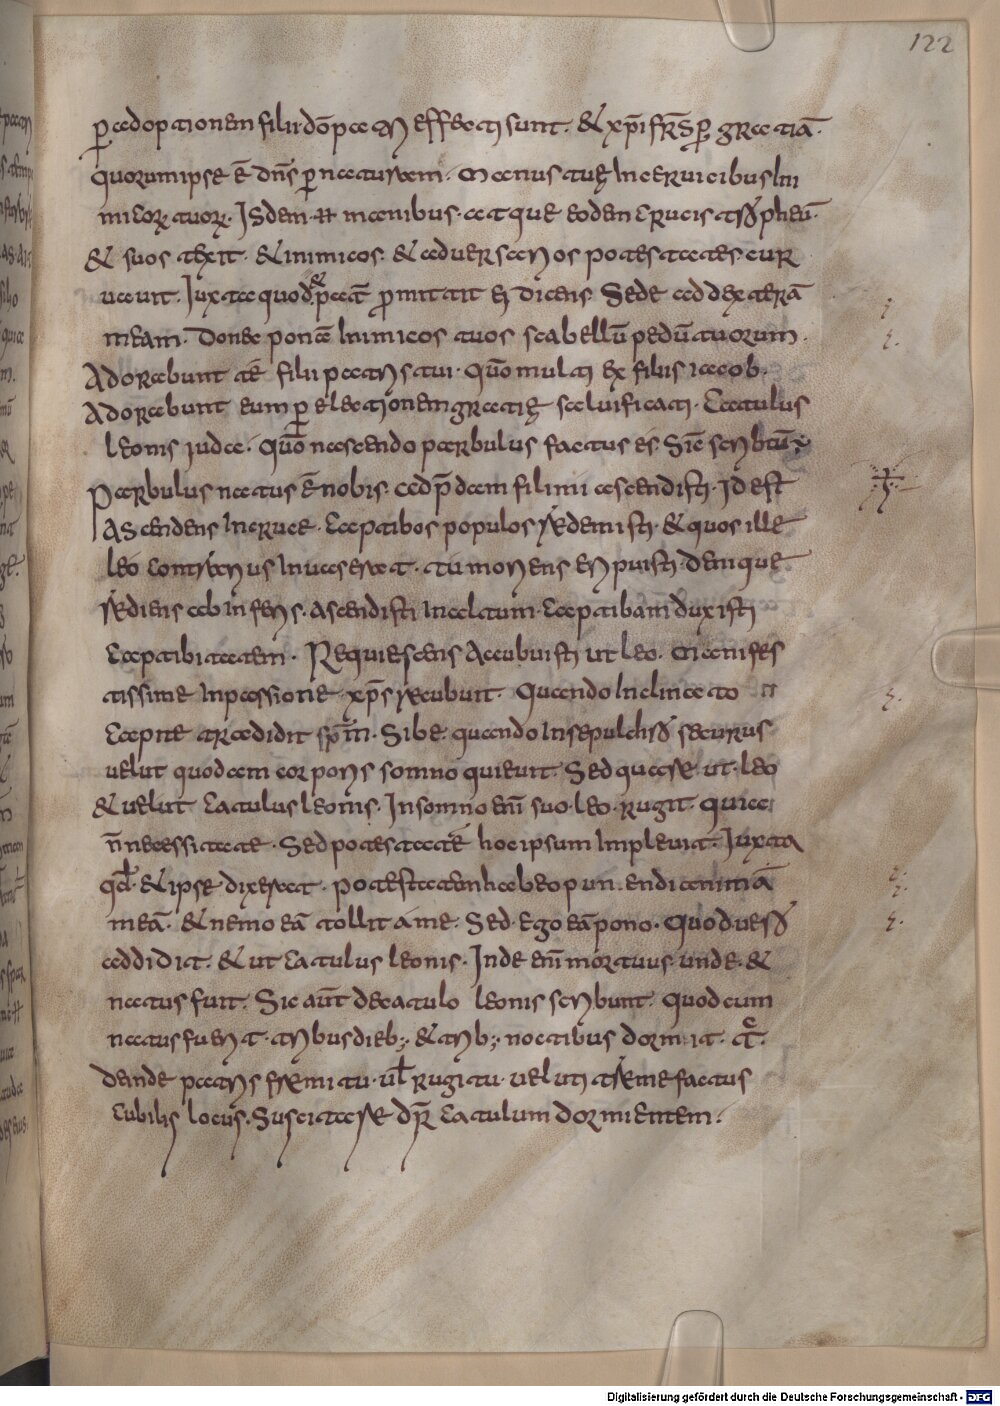 122
p̱ adoptionem filii dō patri effecti sunt. & xp̄i frs̄ p̱ gratiā.
quorum ipse ē dn̄s p̱ naturam. Manus tuę In ceruicibus Ini
micorꝝ tuorꝝ. Isdem manibus atque eodem crucis tropheu͞.
& suos texit. & inimicos & aduersarios potestates cur
uauit. Iuxta quod &
dicens. Sede ad dexterā
meam. Donec ponā Inimicos tuos scabellū pedū tuorum.
Adorabunt te filii patris tui. Quō multi ex filiis iacob.
Adorabunt eum p̱ electionem gratię saluificati. Catulus
leonis iuda. Quō nascendo parbulus factus es. Sic̄ scribtū;
Parbulus natus ē nobis. Ad p̄dam fili mi ascendisti. Id est
Ascendens In cruce. Captibos populos redemisti. & quos ille
leo contrarius Inuaserat. tu moriens eripuisti. Denique
rediens ab Inferis. Ascendisti In altum. captibam duxisti
captibitatem. Requiescens Accubuisti ut leo. Manifes
tissime In passione xp̄s recubuit. Quando Inclinato
capite tradidit sp̄m. Sibe quando In sepulchro securus
uelut quodam corporis somno quieuit. Sed quare ut leo
& uelut catulus leonis. In somno eni͞ suo leo fugit. quia
n̄ necessitate. Sed potestate hoc ipsum Impleuit. Iuxta
qd̄. & ipse dixerat. potestatem habeo ponendi animā
meā. & nemo eā tollit a me. Sed ego eā pono. Quod uero
addidit. & ut catulus leonis. Inde eni͞ mortuus unde &
natus fuit. Sic aut̄ de catulo leonis scribunt. Quod cum
natus fuerit. tribus dieb; & trib; noctibus dormit. &
deinde patris fremitu. ul̄ rugitu. uelut tremefactus
cubilis locus. Suscitare dr̄ catulum dormientem.
Digitalisierung gefördert durch die Deutsche Forschungsgemeinschaft - DFG